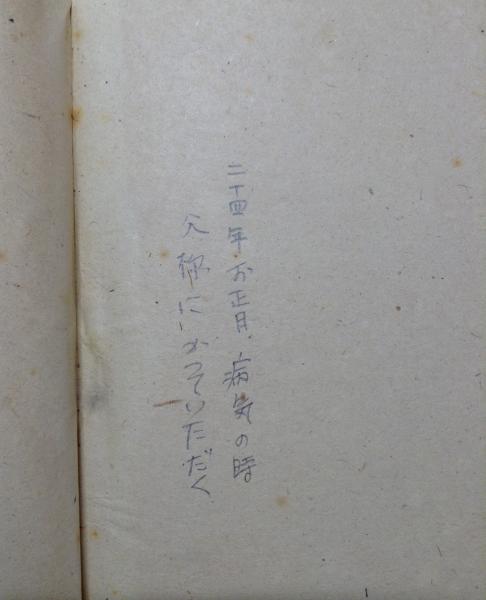 二十四年お正月、病気の時
父様にかっていただく